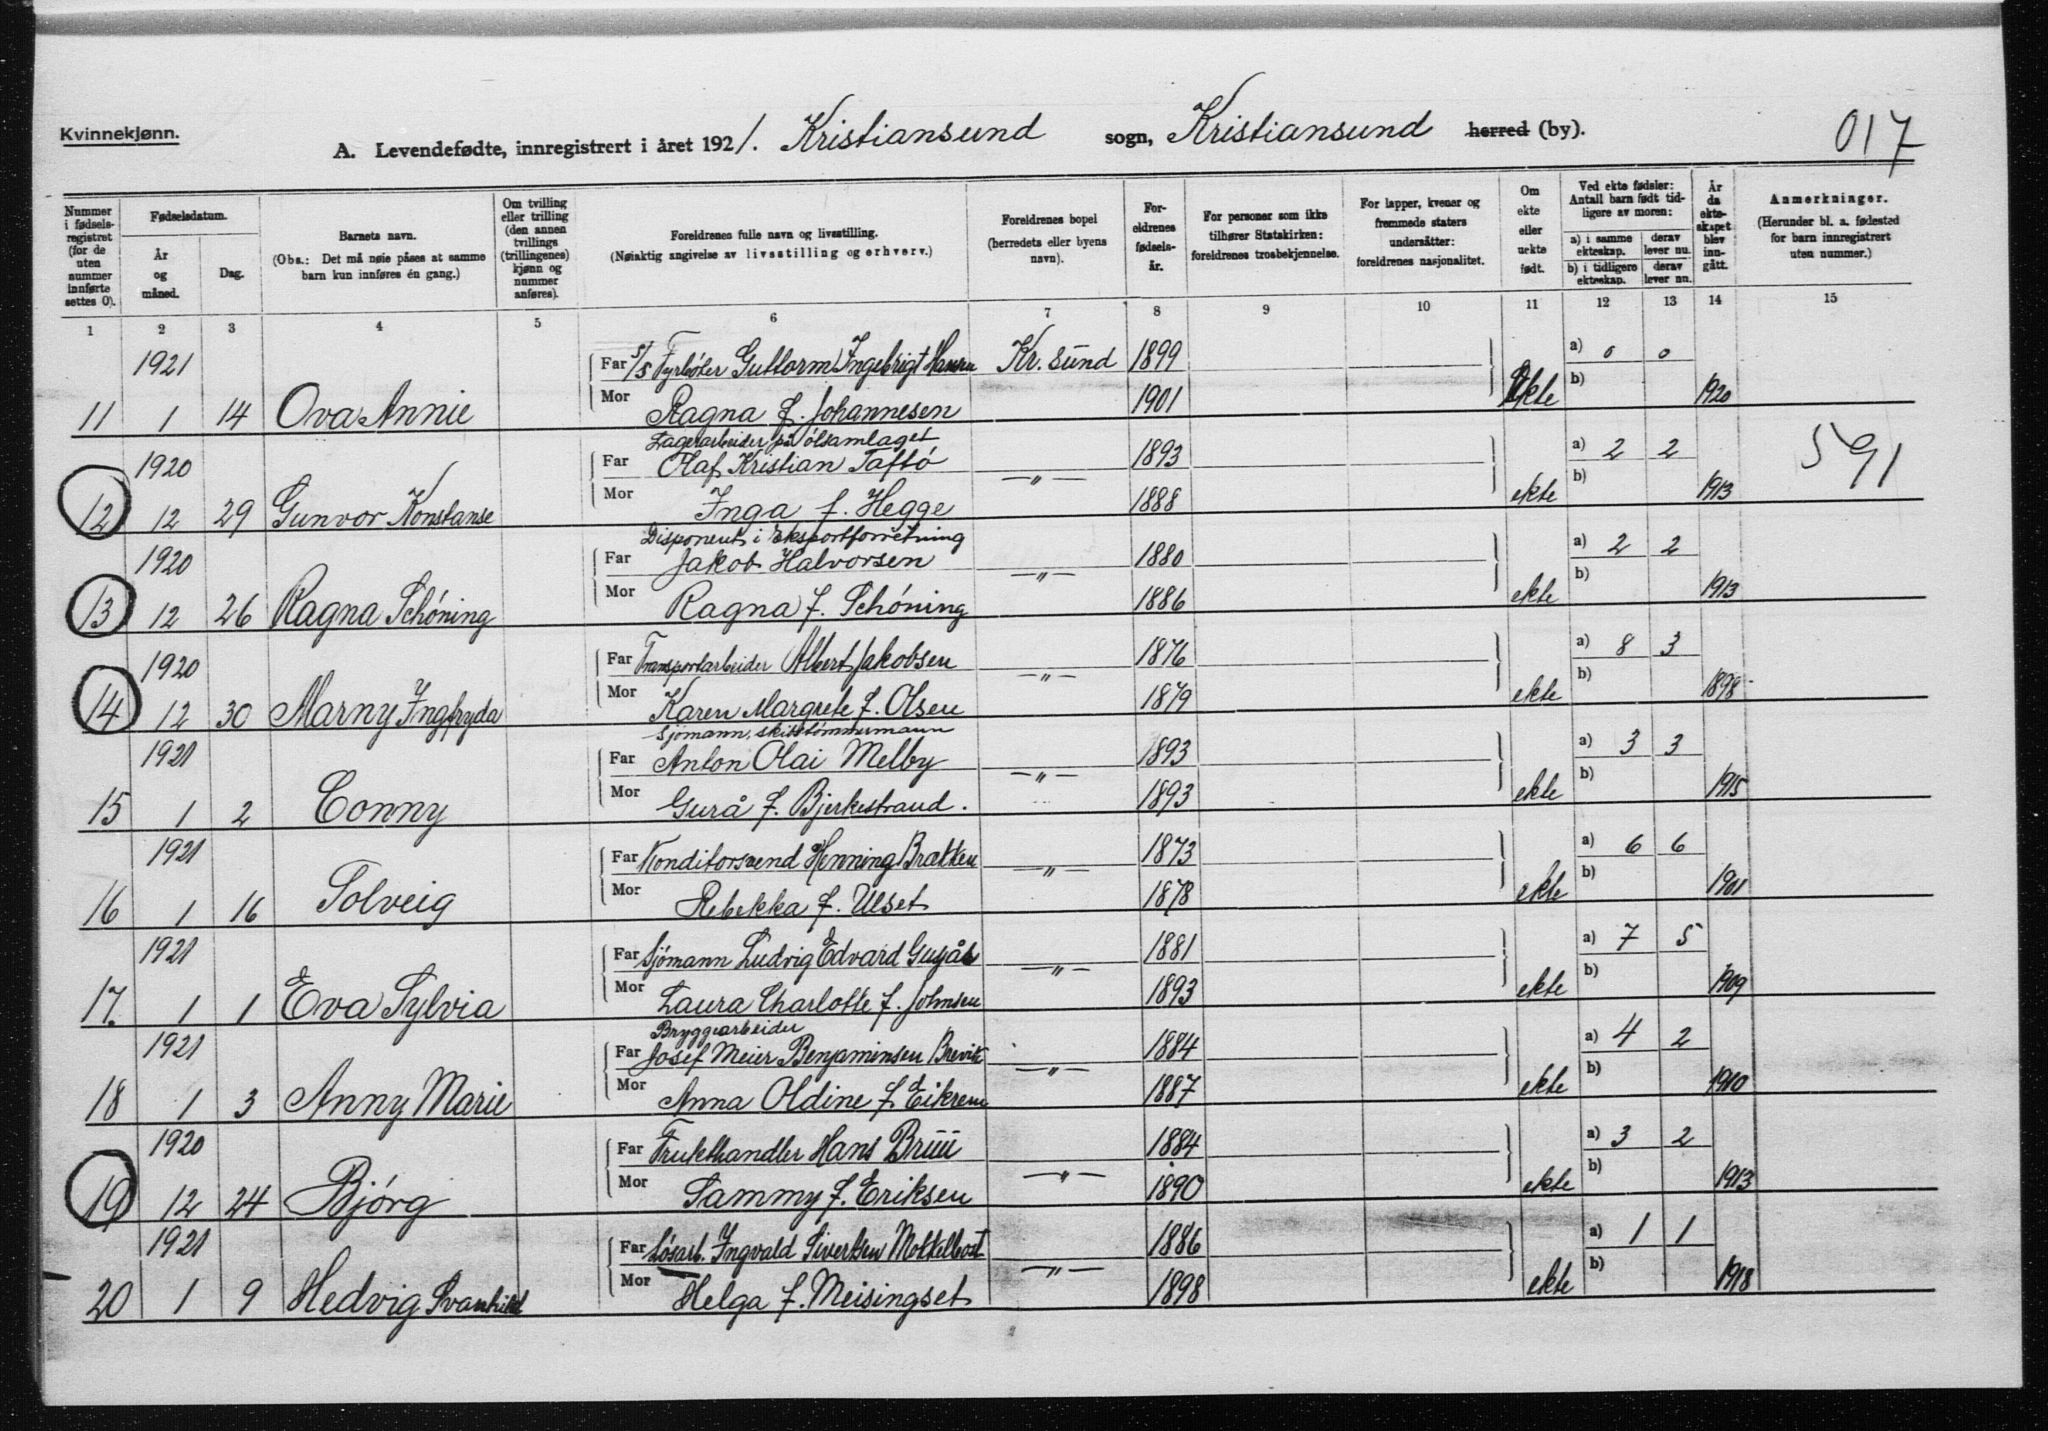 Kvinnekjønn.
A. Levendefødte, innregistrert i året 1921. Kristiansund sogn, Kristiansund herred (by). 017
Nummer i fødselsregistret (for de uten nummer innførte settes 0).
Fødselsdatum.
År og måned.
Dag.
Barnets navn.
(Obs.: Det må nøie påses at samme barn kun innføres én gang.)
Om tvilling eller trilling (den annen tvillings (trillingenes) kjønn og nummer anføres).
Foreldrenes fulle navn og livsstilling.
(Nøiaktig angivelse av livsstilling og erhverv.)
Foreldrenes bopel (herredets eller byens navn).
Foreldrenes fødselsår.
For personer som ikke tilhører Statskirken: foreldrenes trosbekjennelse.
For lapper, kvener og fremmede staters undersåtter: foreldrenes nasjonalitet.
Om ekte eller uekte født.
Ved ekte fødsler: Antall barn født tidligere av moren:
a) i samme ekteskap. derav lever nu.
b) i tidligere ekteskap. derav lever nu.
År da ekteskapet blev inngått.
Anmerkninger.
(Herunder bl. a. fødested for barn innregistrert uten nummer.)
1 2 3 4 5 6 7 8 9 10 11 12 13 14 15
1921 Far s/s Fyrbøter Guttorm Ingebrigt Hansen Kr. sund 1899 a) 0 0
11 1 14 Ova Annie Mor Ragna f. Johannesen 1901 Ekte b) 1920
Lagerarbeider på ølsamlaget
1920 Far Olaf Kristian Taftø —"— 1893 a) 2 2 591
12 12 29 Gunvor Konstanse Mor Inga f. Hegge 1888 ekte b) 1913
Disponent i Eksportforretning
1920 Far Jakob Halvorsen —"— 1880 a) 2 2
13 12 26 Ragna Schöning Mor Ragna f. Schöning 1886 ekte b) 1913
1920 Far Transportarbeider Albert Jakobsen —"— 1876 a) 8 3
14 12 30 Marny Ingfryda Mor Karen Margrete f. Olsen 1879 ekte b) 1898
Sjömann, skibstömmermann
1921 Far Anton Olai Melby —"— 1893 a) 3 3
15 1 2 Conny Mor Gurå f. Bjerkestrand. 1893 ekte b) 1915
1921 Far Konditorsvend Henning Bratken —"— 1873 a) 6 6
16 1 16 Solveig Mor Rebekka f. Ulset 1878 ekte b) 1901
1921 Far Sjömann Ludvig Edvard —"— 1881 a) 7 5
17. 1 1 Eva Sylvia Mor Laura Charlotte f. Johnsen 1893 ekte b) 1909
Bryggearbeider
1921 Far Josef Meier Benjaminsen Brevik —"— 1884 a) 4 2
18 1 3 Anny Marie Mor Anna Oldine f. Eikrem 1887 ekte b) 1910
1920 Far Frukthandler Hans Brüü —"— 1884 a) 3 2
19 12 24 Bjørg Mor Sammy f. Eriksen 1890 ekte b) 1913
1921 Far Løsarb. Ingvald Sivertsen Mokkelbost —"— 1886 a) 1 1
20 1 9 Hedvig Svanhild Mor Helga f. Meisingset 1898 ekte b) 1918